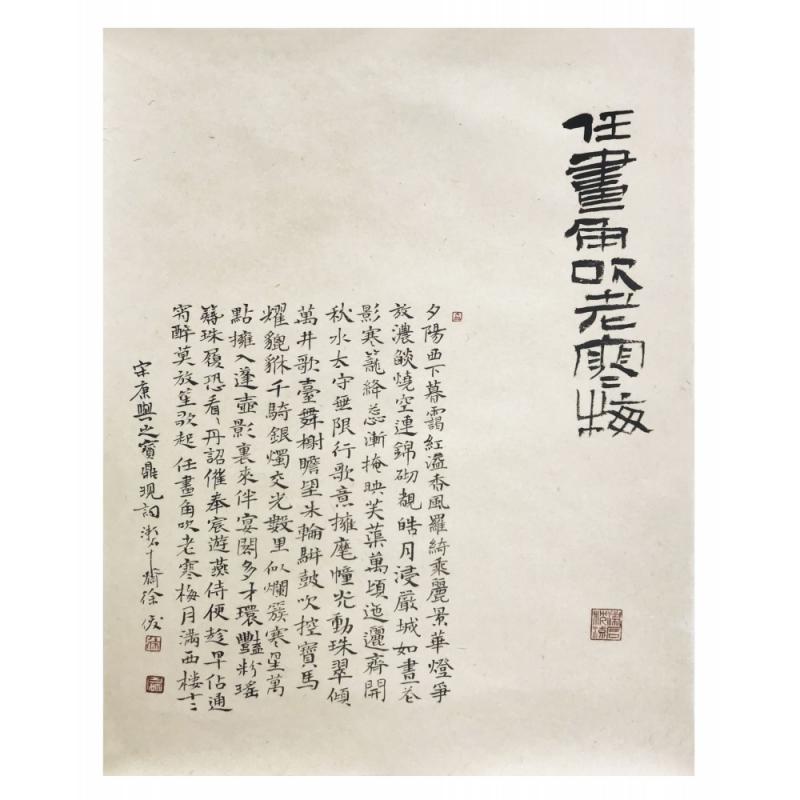 任畫角吹老寒梅
夕陽西下暮靄紅溢香風羅綺乘麗景華燈爭
放濃燄燒空連錦砌覩皓月浸嚴城如晝花
影寒籠絳蕊漸掩映芙蕖萬頃迤邐齊開
秋水太守無限行歌意擁麾幢光動珠翠傾
萬井歌臺舞榭瞻望朱輪駢鼓吹控寶馬
耀貔貅千騎銀燭交光數里似爛簇寒星萬
點擁入蓬壺影裏來伴宴閣多才環豔粉瑤
簪珠履恐看〻丹詔催奉宸遊燕侍便趁早佔通
宵醉莫放笙歌起任畫角吹老寒梅月滿西樓十二
宋康與之寶鼎現詞 徐俊